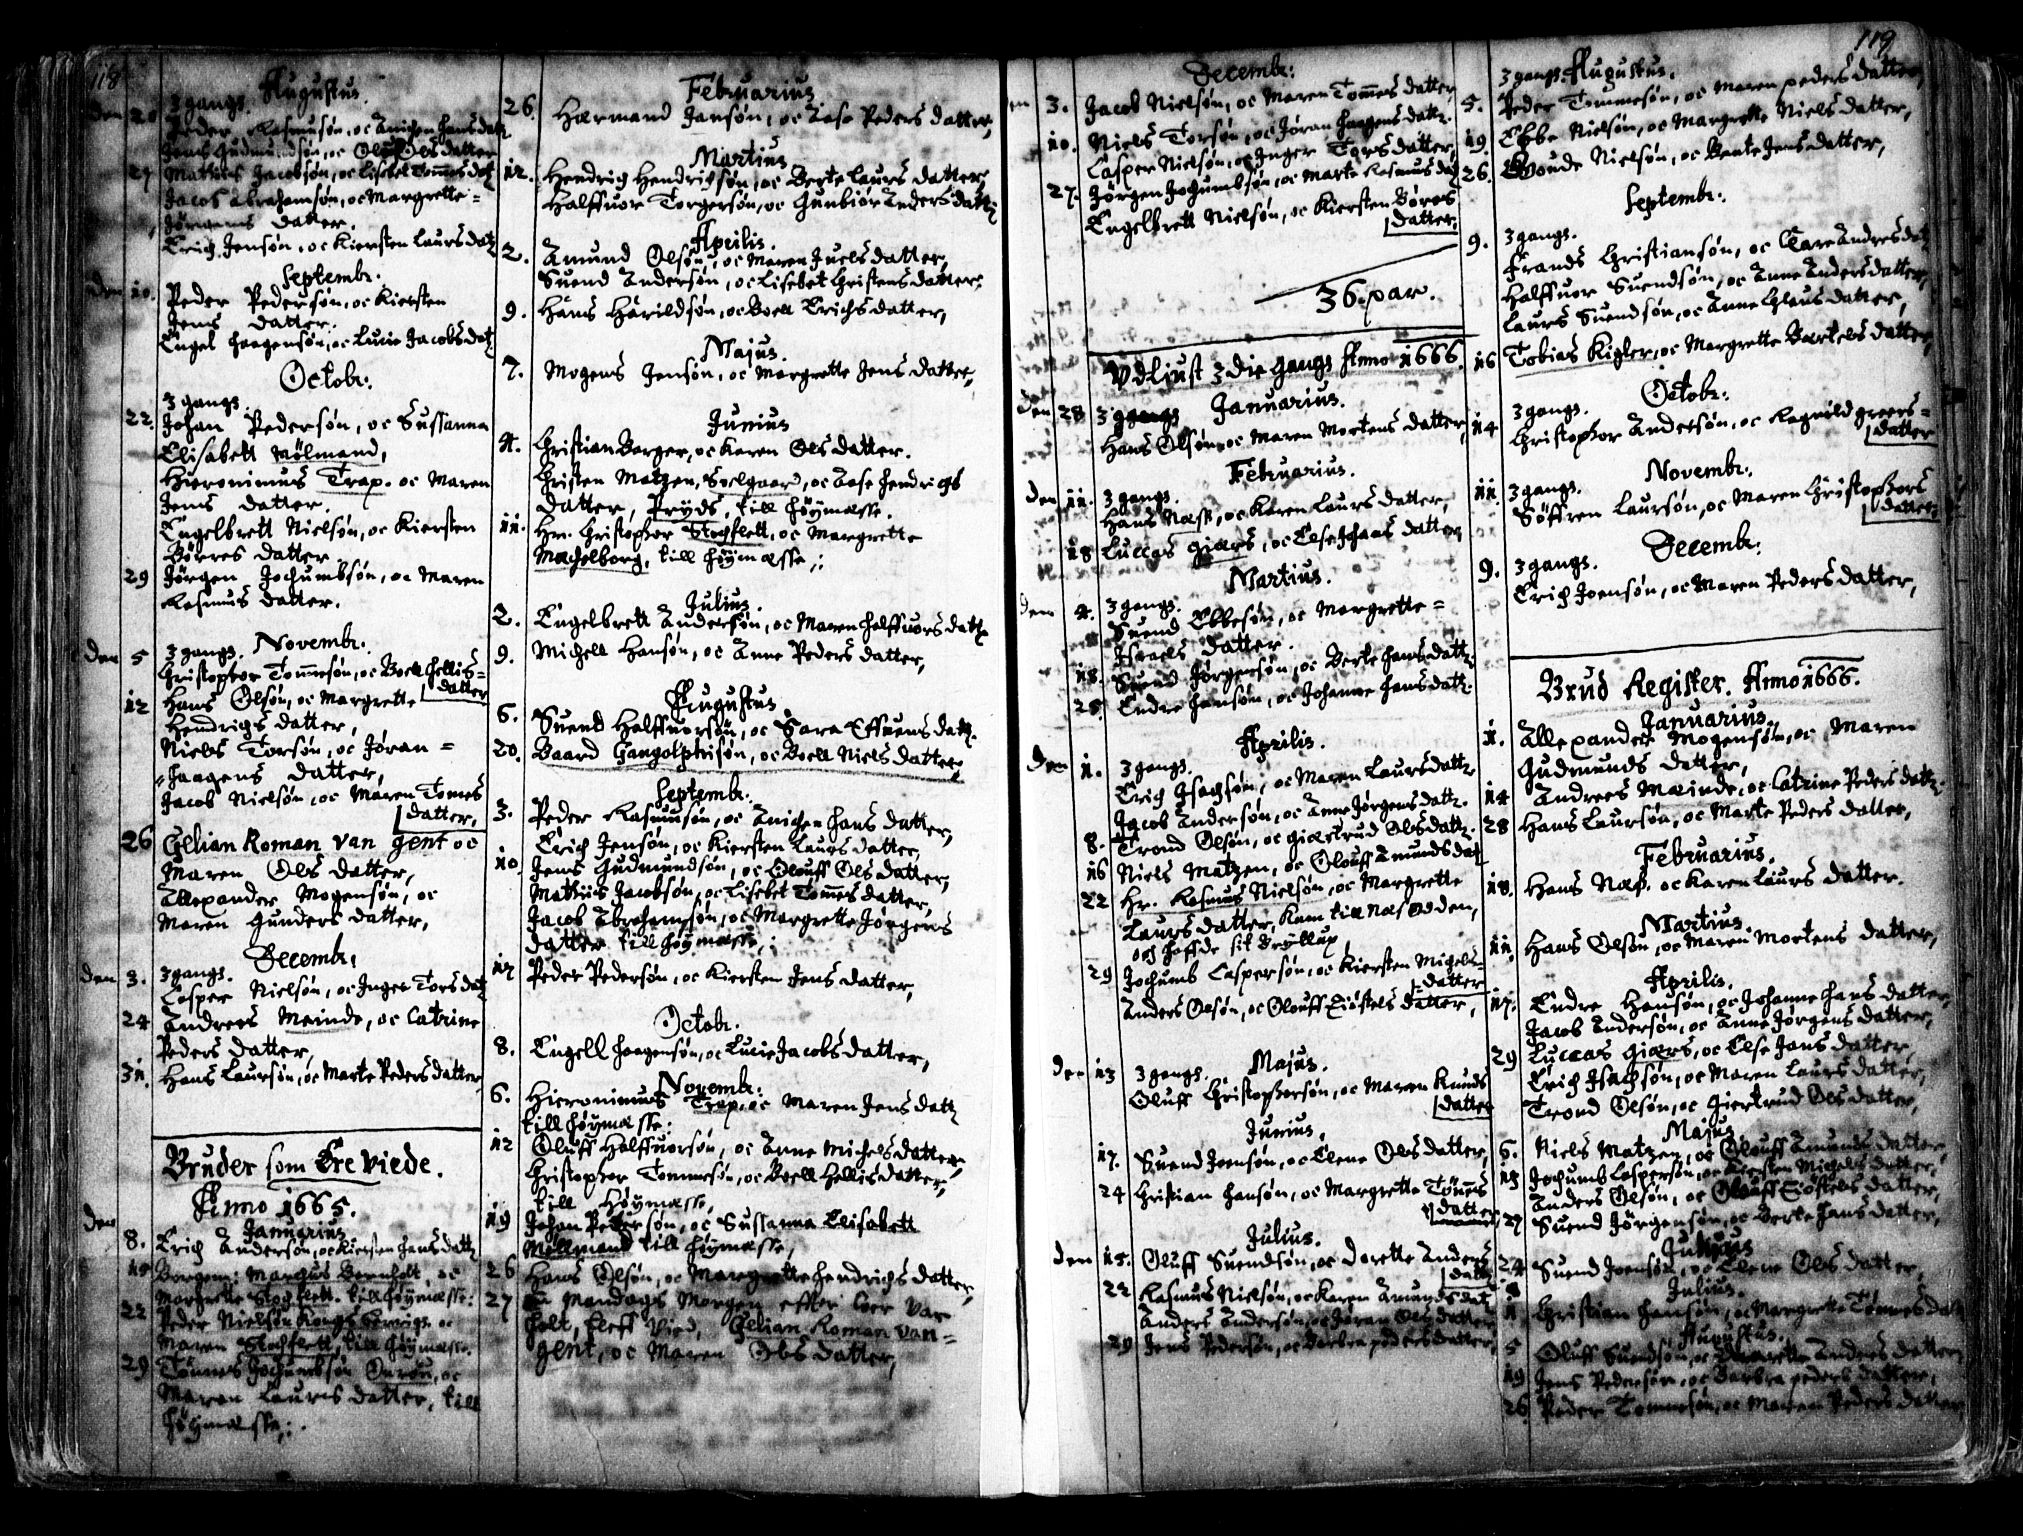 118
3 gangs. Augustus.
den 20 Peder Rasmusøn, oc Anichen Hans datt
Jens Gudmundsøn, oc Oluff Ols datter
27 Mathiis Jacobsøn, oc Lisebet Tommes dat
Jacob Abrahamsøn, oc Margrette =
Jørgens datter.
Erich Jensøn, oc Kiersten Laurs datt
Septembr:
den 10. Peder Pedersøn, oc Kiersten
Jens datter.
Engel Haagensøn, oc Lucie Jacobs datt
Octobr:
3 gangs.
22. Johan Pedersøn, oc Sussanna
Elisabett Mølmand,
Hieronimus Trap. oc Maren
Jens datter.
Engelbrett Nielsøn, oc Kiersten
Børres datter
29 Jørgen Jochumbsøn, oc Maren
Rasmus datter.
3 gangs. Novembr:
den 5 Christopher Tommesøn, oc Boell Hellis=
datter
12 Hans Olsøn, oc Margrette
Hendrichs datter,
Niels Torsøn, oc Jøran =
Haagens datter,
Jacob Nielsøn, oc Maren Tommes
datter,
26 Gelian Roman van gent oc
Maren Ols datter,
Allexander Mogensøn, oc
Maren Gunders datter,
Decembr:
den 3. 3 gangs.
Casper Nielsøn, oc Inger Tors datt
24 Andrees Meinde, oc Catrine
Peders datter,
31. Hans Laursøn, oc Marte Peders datter
Bruder som Ere Viede.
Anno 1665.
den Januarius
8. Erich Andersøn, oc Kiersten Jens datt
15 Borgem: Marchus Bernholt, oc
Margrette Stochflett. till høymæsse:
22 Peder Nielsøn Kongs oc
Maren Stochflett, till høymæsse.
29 Tønnes Jochumbsøn oc
Maren Laurs datter, till
høymæsse:.
Februarius
26. Hermand Jansøn, oc Aase Peders datter,
Martius
12. Hendrich Hendrichsøn, oc Berte Laurs datter
Halffuor Torgersøn, oc Gunbiør Anders datt
Aprilis.
2. Amund Olsøn, oc Maren Juels datter,
Suend Andersøn, oc Lisebet Christens datter,
9. Hans Harildsøn, oc Boell Erichs datter,
Majus.
7. Mogens Jensøn, oc Margrette Jens datter,
Junius
4. Christian Borger, oc Karen Ols datter.
Christen Matzen, Soelgaard, oc Aase Hendrichs
datter, Pryds, till høymæsse.
11. Hr. Christopher Stochflett, oc Margrette
Machelborg, till høymæsse,:
Julius
2. Engelbrett Andersøn, oc Maren Halffuors datt
9. Michell Hansøn, oc Anne Peders datter,
Augustus
6. Suend Halffuorsøn, oc Sara Effuens datt.
20. Baard Gangolphisøn, oc Boell Niels datter,
Septembr:
3. Peder Rasmusøn, oc Anichen Hans datter,
Erich Jensøn, oc Kiersten Laurs datter,
10. Jens Gudmundsøn, oc Oluff Ols datter,
Mathiis Jacobsøn, oc Lisebet Tommes datter,
Jacob Abrahamsøn, oc Margrette Jørgens
datter till høymæsse,:
17 Peder Pedersøn, oc Kiersten Jens datter,
Octobr.
8. Engell Haagensøn, oc Lucie Jacobs datter,
Novembr:
6. Hieronimus Trap, oc Maren Jens datt
till høymæsse:
12 Oluff Halffuorsøn, oc Anne Michels datter,
Christopher Tommesøn, oc Boell Hellis datter,
till Høymæsse,
19 Johan Pedersøn, oc Sussanna Elisabett
Møllmand till høymæsse,
26 Hans Olsøn, oc Margrette Hendrichs datter,
27 Mandags Morgen effter Var
holt, bleff Vied, Gelian Roman van=
gent, oc Maren Ols datter,
119
Decembr:
en 3. Jacob Nielsøn, oc Maren Tommes datter,
10. Niels Torsøn, oc Jøran Haagens datt.
Casper Nielsøn, oc Inger Tors datter,
27. Jørgen Jochumbsøn, oc Marte Rasmus dat
Engelbrett Nielsøn, oc Kiersten Børres
datter.
36. par.
Vdliust 3 die gangs Anno 1666.
Januarius.
den 28 3 gangs
Hans Olsøn, oc Maren Mortens datter,
Februarius.
den 11. 3 gangs.
Hans Næss, oc Karen Laurs datter,
18 Luccas Giærs, oc Else Hans datter
Martius.
den 4. 3 gangs.
Suend Ebbesøn, oc Margrette=
Israels datter.
18. Suend Jørgensøn, oc Berte Hans datt.
25. Endre Hansøn, oc Johanne Hans datt.
Aprilis.
den 1. 3 gangs.
Erich Isachsøn, oc Maren Laurs datt
Jacob Andersøn, oc Anne Jørgens datt.
8. Trond Olsøn, oc Giertrud Ols datt.
16 Niels Matzen, oc Olouff Amunds dat
22 Hr. Rasmus Nielsøn, oc Margrette
Laurs datter, kam till Næsodden,
och hoffde sit Brøllup,
29 Jochumb Caspersøn, oc Kiersten Michels=
datter
Anders Olsøn, oc Olouff Siøstels datter,
Majus.
den 13 3 gangs.
Oluff Christophersøn, oc Maren Knuds
datter
Junius,
17. Suend Joensøn, oc Elene Ols datter,
24 Christian Hansøn, oc Margrette Tønnes
datter
Julius.
den 15. Oluff Suendsøn, oc Dorette Anders
datt
22 Rasmus Nielsøn, oc Karen Amunds dat
Anders Andersøn, oc Jøran Ols datter
29 Jens Pedersøn, oc Barbra peders datter,
3 gangs. Augustus.
5. Peder Tommesøn, oc Maren peders datter,
19. Ebbe Nielsøn, oc Margrette Niels datter,
26. Woude Nielsøn, oc Bente Jens datter,
Septembr:
3 gangs.
9. Frands Christiansøn, oc Clare Andres datt
Halffuor Suendsøn, oc Anne Anders datter,
Laurs Suendsøn, oc Anne Claus datter,
16 Tobias Kigler, oc Margrette Bartels datter,
Octobr:
3 gangs.
14 Christopher Andersøn, oc Ragnild greers=
datter
Novembr:
11 3 gangs.
Søffren Laursøn, oc Maren Christophers
datter,
Decembr:
9. 3 gangs.
Erich Joensøn, oc Maren Peders datter,
Brud Register. Anno 1666.
Januarius.
1. Allexander Mogensøn, oc Maren
Gudmunds datter,
14 Andrees Meinde, oc Catrine Peders datt.
28 Hans Laursøn, oc Marte Peders datter,
Februarius.
18. Hans Næss. oc Karen Laurs datter.
Martius.
11. Hans Olsøn, oc Maren Mortens datter,
Aprilis.
17. Endre Hansøn, oc Johanne Hans datter,
Jacob Andersøn, oc Anne Jørgens datter,
29 Luccas Giærs, oc Else Jans datter,
Erich Isachsøn, oc Maren Laurs datter,
Trond Olsøn, oc Giertrud Ols datter,
Majus
6. Niels Matzen, oc Olouff Amunds datter,
13 Jochumb Caspersøn, oc Kiersten Michels datter,
Anders Olsøn, oc Olouff Siøstels datter,
27 Suend Jørgensøn, oc Berte Hans datter,
Junius
24 Suend Joensøn, oc Elene Ols datter,
Julius.
1. Christian Hansøn, oc Margrette Tønnes datt
Augustus.
5 Oluff Suendsøn, oc Dorette Anders datter
19 Jens Pedersøn, oc Barbra peders datter,
26. Peder Tommesøn, oc Maren Peders datter